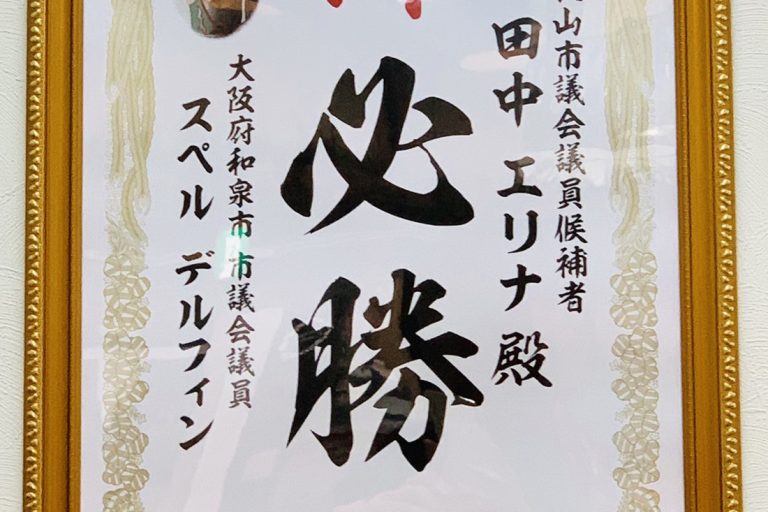 山市議会議員候補者
田中 エリナ 殿
必勝
大阪府和泉市 市議会議員
スペル デルフィン